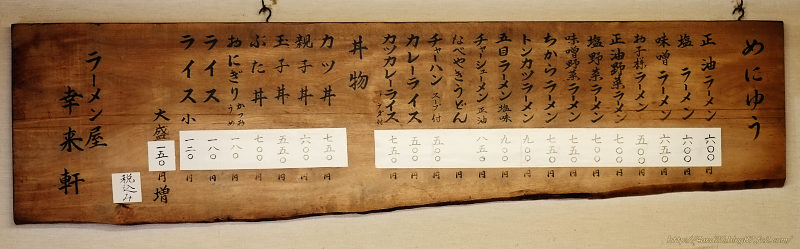 めにゆう
正油ラーメン 六〇〇円
塩ラーメン 六〇〇円
味噌ラーメン 六五〇円
お子様ラーメン 五〇〇円
正油野菜ラーメン 七五〇円
塩野菜ラーメン 七五〇円
味噌野菜ラーメン 七五〇円
ちからラーメン 七五〇円
トンカツラーメン 九〇〇円
五目ラーメン 塩味 九〇〇円
チャーシューメン 正油 八五〇円
なべやきうどん 円
チャーハン スープ付 五〇〇円
カレーライス 五〇〇円
カツカレーライス 七五〇円
丼物
カツ丼 七五〇円
親子丼 六〇〇円
玉子丼 五五〇円
ぶた丼 七〇〇円
おにぎり かつお うめ 一八〇円
ライス 一八〇円
ライス小 一二〇円
大盛 一五〇円増
税込み
ラーメン屋
幸来軒